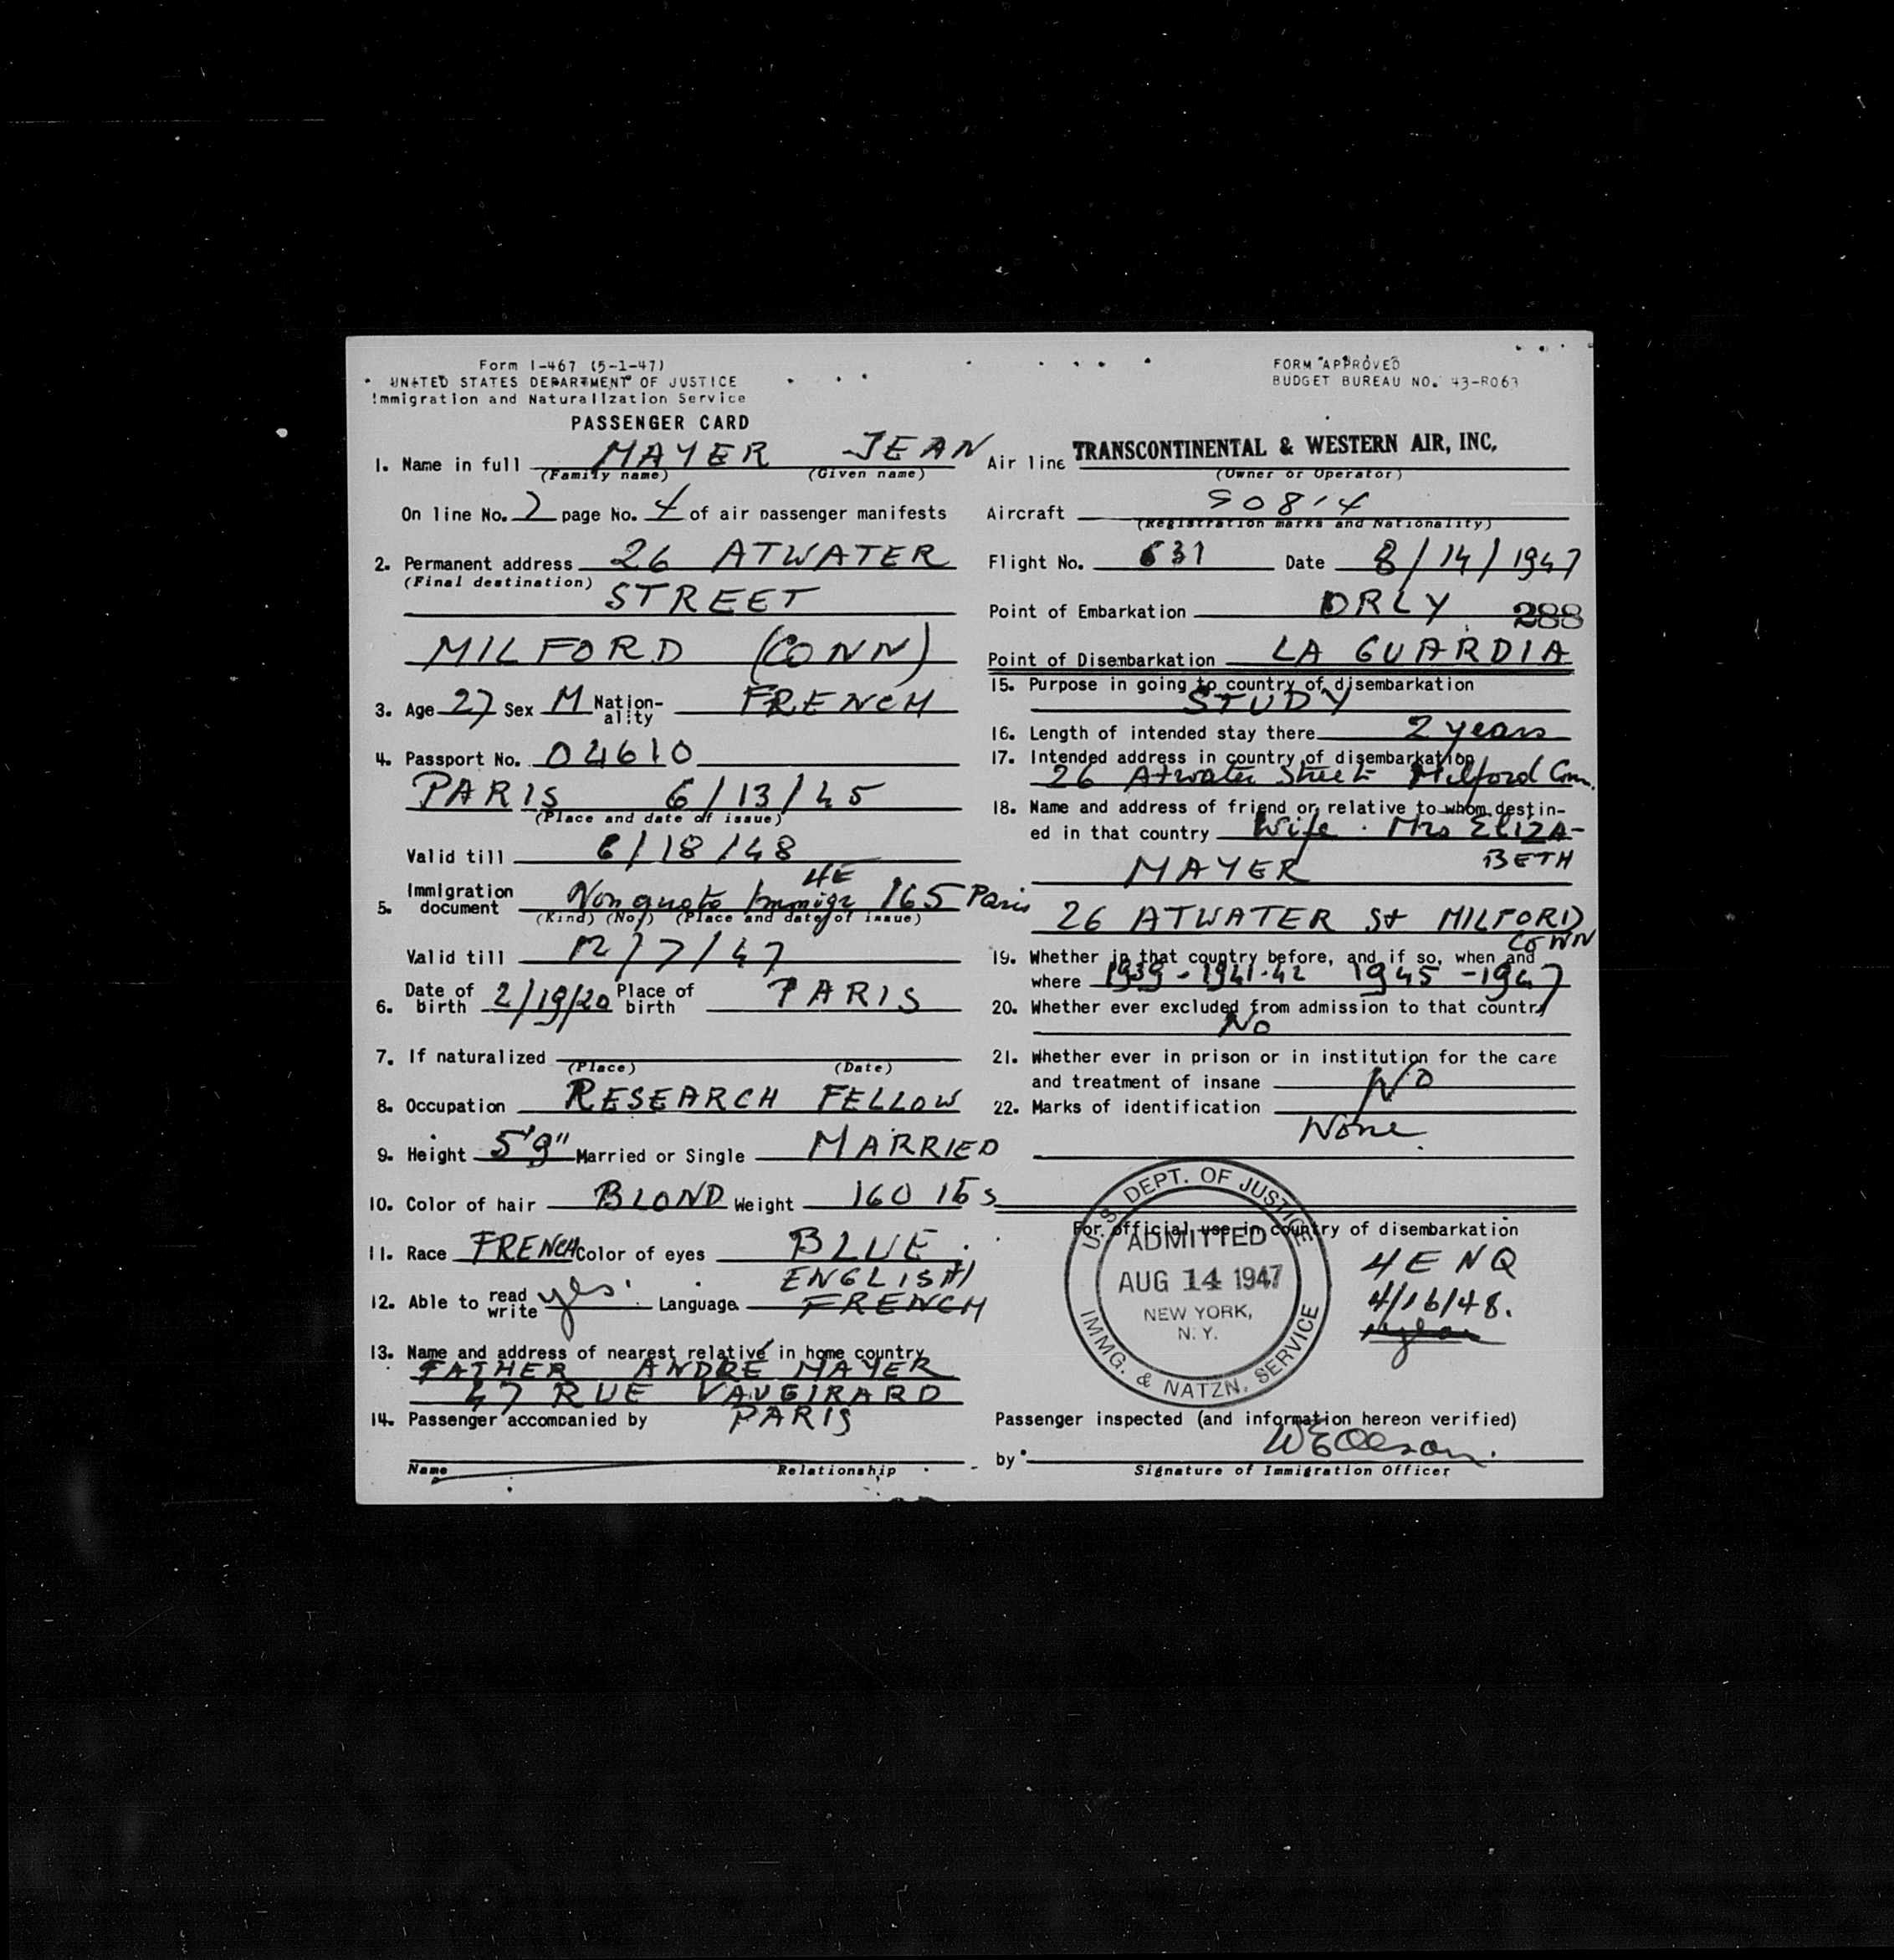 Form I-467 (5-1-47)
UNITED STATES DEPARTMENT OF JUSTICE
Immigration and Naturalization Service
PASSENGER CARD
FORM APPROVED
BUDGET BUREAU NO. 43-R063
1. Name in full MAYER JEAN
(Family name) (Given name)
On line No. 2 page No. 4 of air passenger manifests
2. Permanent address 26 ATWATER
(Final destination) STREET
MILFORD (CONN)
3. Age 27 Sex M Nation-ality FRENCH
4. Passport No. 04610
PARIS 6/13/45
(Place and date of issue)
Valid till 6/18/48
4E
5. Immigration document Nonquota Immigr 165 Paris
(Kind) (No.) (Place and date of issue)
Valid till 12/7/47
6. Date of birth 2/19/20 Place of birth PARIS
7. If naturalized
(Place) (Date)
8. Occupation RESEARCH FELLOW
9. Height 5'9" Married or Single MARRIED
10. Color of hair BLOND Weight 160 lbs
11. Race FRENCH Color of eyes BLUE
ENGLISH
12. Able to read write yes Language FRENCH
13. Name and address of nearest relative in home country
FATHER ANDRE MAYER
47 RUE VAUGIRARD
14. Passenger accompanied by PARIS
Name Relationship
Air line TRANSCONTINENTAL & WESTERN AIR, INC.
(Owner or Operator)
Aircraft 90814
(Registration marks and Nationality)
Flight No. 631 Date 8/14/1947
Point of Embarkation ORLY 288
Point of Disembarkation LA GUARDIA
15. Purpose in going to country of disembarkation
STUDY
16. Length of intended stay there 2 years
17. Intended address in country of disembarkation
26 Atwater Street Milford Conn.
18. Name and address of friend or relative to whom destin-
ed in that country Wife. Mrs ELIZA-
MAYER BETH
26 ATWATER St MILFORD
CONN
19. Whether in that country before, and if so, when and
where 1939-1941-42 1945-1947
20. Whether ever excluded from admission to that country
No
21. Whether ever in prison or in institution for the care
and treatment of insane NO
22. Marks of identification
None
For official use in country of disembarkation
U.S. DEPT. OF JUSTICE
ADMITTED
AUG 14 1947
NEW YORK,
N.Y.
IMMG. & NATZN. SERVICE
4E NQ
4/16/48.
Passenger inspected (and information hereon verified)
by W E Olson
Signature of Immigration Officer